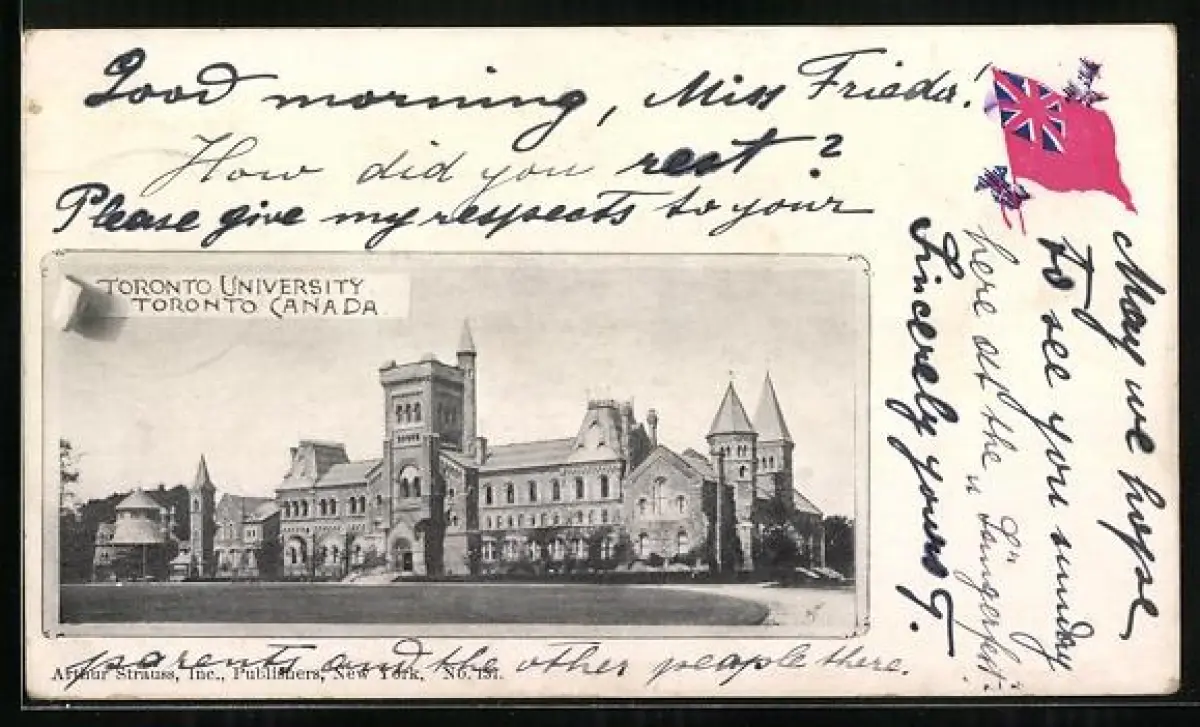 Good morning, Miss Frieda!
How did you rest?
Please give my respects to your
TORONTO UNIVERSITY
TORONTO CANADA
parents and the other people there.
Arthur Strauss, Inc., Publishers, New York, No. 131.
May we hope
to see you sunday
here at the "Sängerfest?"
Sincerely yours G.